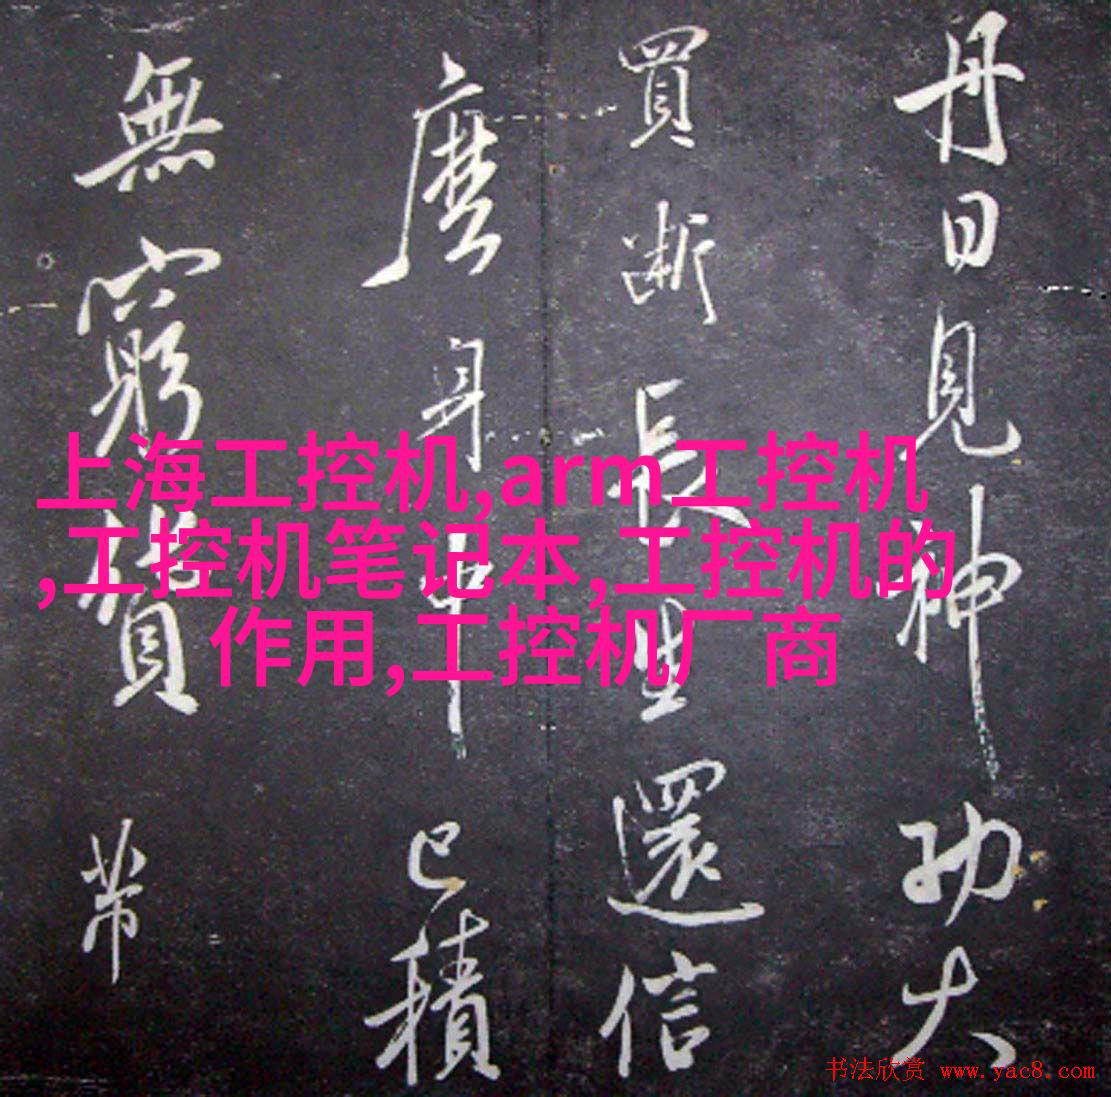 丹日見神功大
買斷長生還信
麼身中已積
無窮貨帶
上海工控机,arm工控机
,工控机笔记本,工控机的
作用,工控机厂商
书法欣赏 www.yac8.com